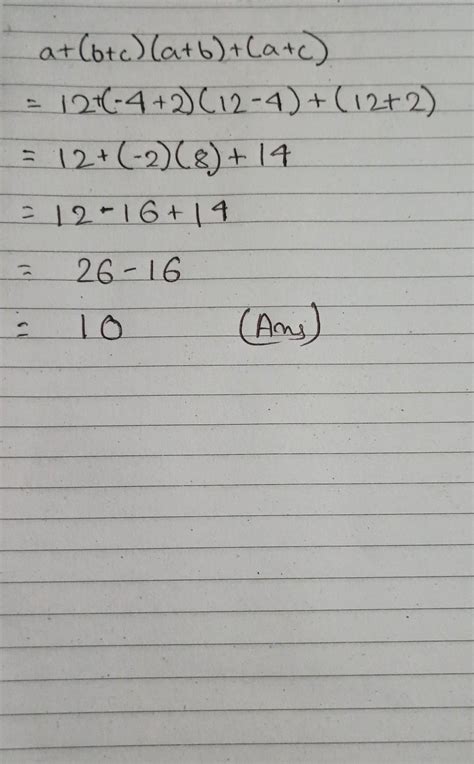 a+(b+c)(a+b)+(a+c)
= 12+(-4+2)(12-4)+(12+2)
= 12+(-2)(8)+14
= 12-16+14
= 26-16
= 10 (Ans)